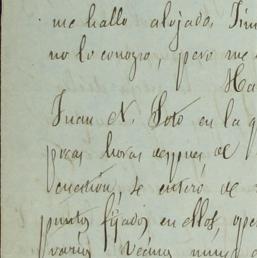 me hallo alojado.
no lo conozco, pero me
Juan N. Soto en la q
pocas horas despues de
cuestión, se enteró de
puntos fijados en ellos,
varios